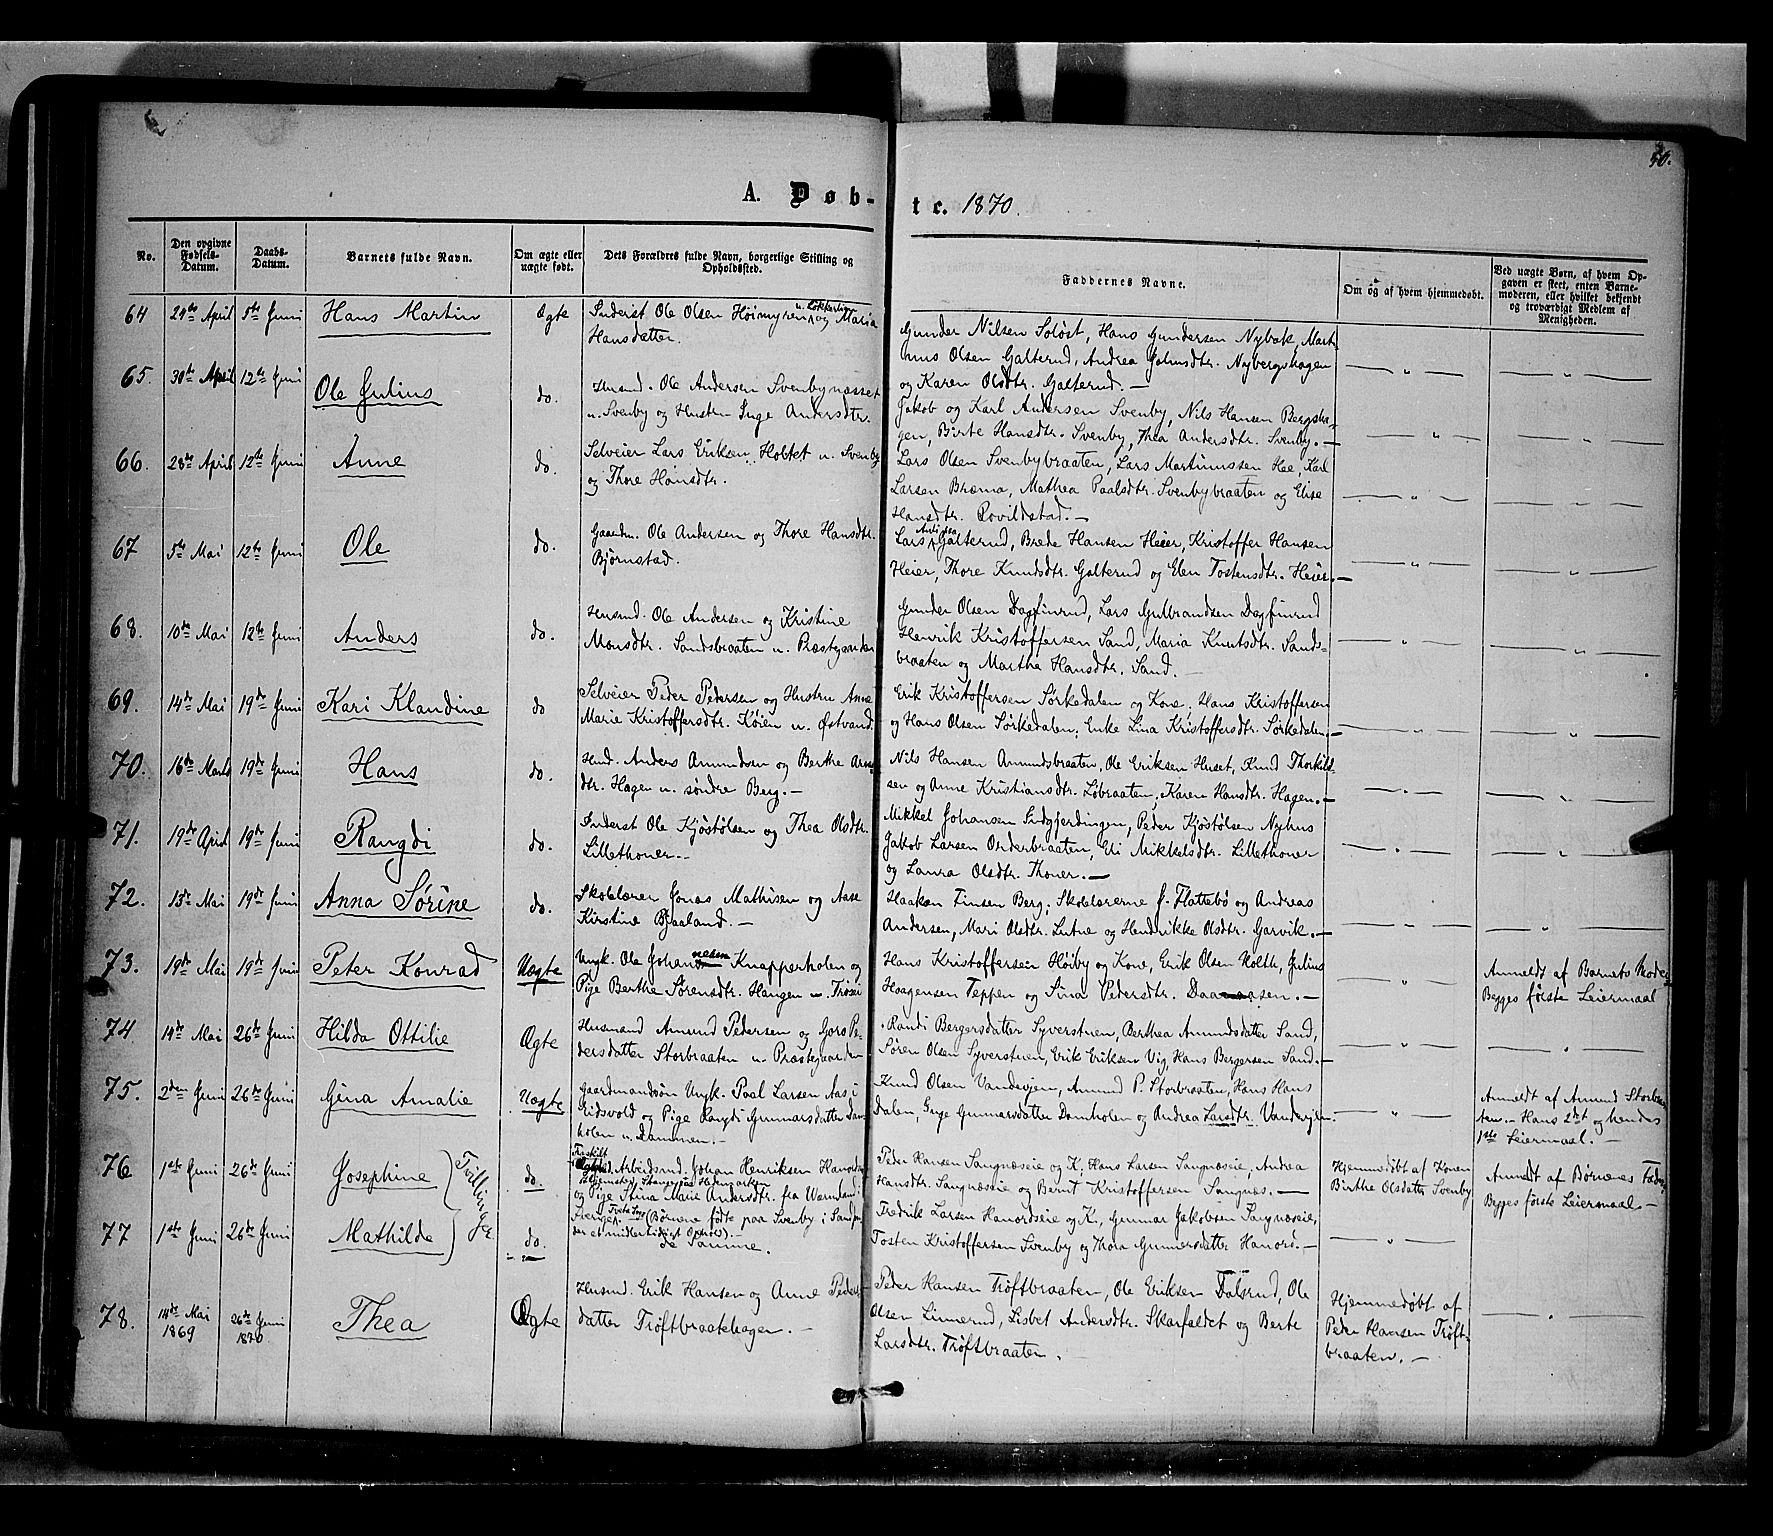 50.
A. Døb-
te. 1870.
No.
Den opgivne Fødsels-Datum.
Daabs-Datum.
Barnets fulde Navn.
Om ægte eller uægte født.
Dets Forældres fulde Navn, borgerlige Stilling og Opholdssted.
Faddernes Navne.
Om og af hvem hjemmedøbt.
Ved uægte Børn, af hvem Opgaven er skeet, enten Barnemoderen, eller hvilket bekjendt og troværdigt Medlem af Menigheden.
64 29de April 5te Juni Hans Martin Ægte
Inderst Ole Olsen Høimyren og Maria
Hansdatter.
Gunder Nilsen Soløst, Hans Gundersen Nybak, Mart-
inus Olsen Galterud, Andrea Nybergshagen
og Karen Olsdtr. Galterud.—
65. 30te April 12te Juni Ole Julius do.
Husmd. Ole Andersen Svenbynæsset
u. Svenby og Hustru Inge Andersdtr.
Jakob og Karl Andersen Svenby, Nils Hansen Bergsha-
gen, Birte Hansdtr. Svenby, Thea Andersdtr. Svenby.—
66. 28de April 12te Juni Anne do.
Selveier Lars Eriksen, Holtet u. Svenby
og Thore Hansdtr.
Lars Olsen Svenbybraaten, Lars Martinussen Hae, Karl
Larsen Bræma, Mathea Paalsdtr. Svenbybraaten og Elise
Hansdtr. Rovildstad.—
67 5te Mai 12te Juni Ole do.
Gaardm. Ole Andersen og Thore Hansdtr.
Bjørnstad.
Lars Galterud, Brede Hansen Heier, Kristoffer Hansen
Heier, Thore Knudsdtr. Galterud og Elen Tostensdtr. Heier.—
68. 10de Mai 12te Juni Anders do.
Husmd. Ole Andersen og Kristine
Monsdtr. Sandsbraaten u. Præstegaarden
Gunder Olsen Dagfinrud, Lars Gulbrandsen Dagfinrud
Henrik Kristoffersen Sand, Maria Knutsdtr. Sands-
braaten og Marthe Hansdtr. Sand.—
69. 14de Mai 19de Juni Kari Klaudine do
Selveier Peder Pedersen og Hustru Anne
Marie Kristoffersdtr. Køien u. Østvand.
Erik Kristoffersen Sørkedalen og Kone, Hans Kristoffersen
og Hans Olsen Sørkedalen, Enke Lina Kristoffersdtr. Sørkedalen.—
70. 16de Marts 19de Juni Hans do.
Husd. Anders Amundsen og Berthe Arne-
dtr. Hagen u. søndre Berg.—
Nils Hansen Amundsbraaten, Ole Eriksen Huset, Knud Thorkild-
sen og Anne Kristiansdtr. Løbraaten, Karen Hansdtr. Hagen.—
71. 19de April 19de Juni Rangdi do.
Inderst Ole Kjøstølsen og Thea Olsdtr.
Lillethoner.—
Mikkel Johansen Sudgjerdingen, Peder Kjøstølsen Nyhus
Jakob Larsen Orderbraaten, Eli Mikkelsdtr. Lillethoner
og Laura Olsdtr. Thoner.—
72. 13de Mai 19de Juni Anna Sørine do.
Skolelærer Jonas Mathisen og Aase
Kirstine Bjaaland.—
Haakon Finsen Berg, Skolelærerne J. Flattebø og Andreas
Andersen, Mari Olsdtr. Lutne og Hendrikke Olsdtr. Garvik.—
73. 19de Mai 19de Juni Peter Konrad Uægte
Ungk. Ole Johannesen Knapperholen og
Pige Berthe Sørensdtr. Haugen u. Trøsei
Hans Kristoffersen Høiby og Kone, Erik Olsen Holth, Julius
Haagensen Teppen og Sina Pedersdtr. Daanaasen.—
Anmeldt af Barnets Moder
Begges første Leiermaal
74 19de Mai 26de Juni Hilda Ottilie Ægte
Husmand Amund Pedersen og Goro Pe-
dersdatter Storbraaten u. Præstegaarden
Randi Bergersdatter Syverstuen, Berthea Amundsdatter Sand,
Søren Olsen Syverstuen, Erik Eriksen Vig, Hans Bergersen Sand.—
75. 2den Juni 26de Juni Gina Amalie Uægte
Gaardmandsøn Ungk. Paal Larsen Aas, i
Eidsvold og Pige Rangdi Gunnarsdatter Dam-
holen u. Dammen.—
Knud Olsen Vandevjen, Amund P. Storbraaten, Hans Hans
Dalen, Inge Gunnarsdatter Damholen og Andrea Larsdtr. Vandevjen—
Anmeldt af Amund Storbraa-
ten.— Hans 2det og hendes
1ste Leiermaal.—
76 1ste Juni 26de Juni Josephine } Tvillinger do.
Fraskilt
Arbeidsmd. Johan Henriksen
Stange paa Hedemarken
og Pige Stina Marie Andersdtr. fra Wermland i
Sverige. (Børnene fødte paa Svenby i Sand
der et midlertidigt Ophold).—
Peder Hansen Sangnæseie og K. Hans Larsen Sangnæseie, Andrea
Hansdtr. Sangnæseie og Bernt Kristoffersen Sangnæs.—
Hjemmedøbt af Konen
Birthe Olsdatter Svenby
Anmeldt af Børnenes Fader
Begges første Leiermaal.—
77 1ste Juni 26de Juni Mathilde do.
de Samme.
Fredrik Larsen Hanordseie og K., Gunnar Jakobsen Sangnæseie,
Tosten Kristoffersen Svenby og Thora Gunnersdatter Hanord.—
78. 14de Mai 1869 26de Juni 1870 Thea Ægte
Husmd. Erik Hansen og Anne Peders-
datter Trøftbraatehagen.—
Peder Hansen Trøftbraaten, Ole Eriksen Dalsrud, Ole
Olsen Linnerud, Lisbet Andersdtr. Skarfaldet og Berte
Larsdtr. Trøftbraaten.
Hjemmedøbt af
Peder Hansen Trøft-
braaten.—